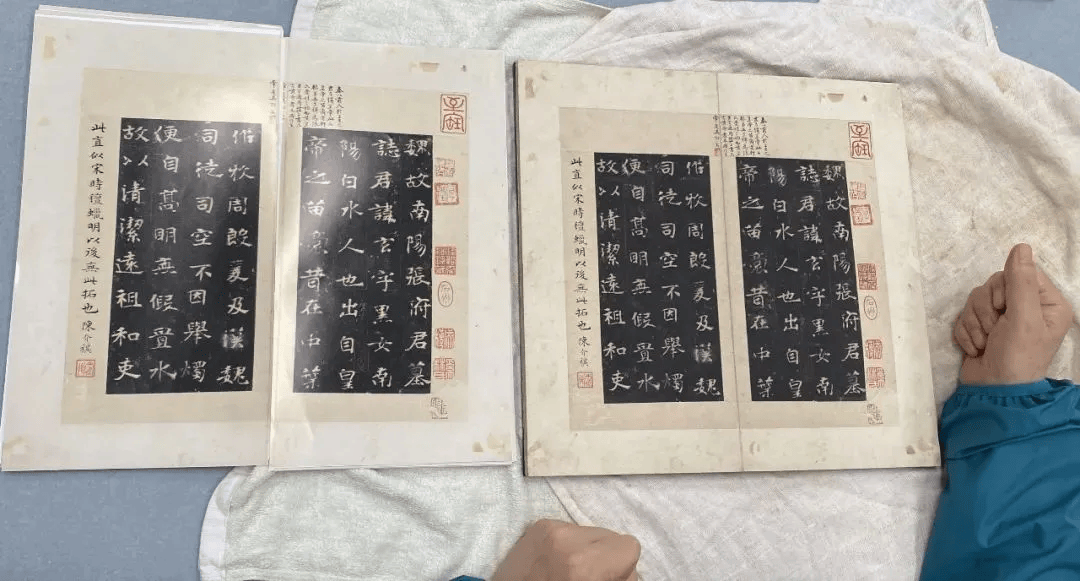 魏故南陽張府君墓
誌君諱玄字黑女南
陽白水人也出自皇
帝之苗裔昔在中葉
作牧周殷爰及漢魏
司徒司空不因舉燭
便自髙明無假置水
故以清潔遠祖和吏
此直似宋時氊蠟明以後無此拓也 陳介祺
魏故南陽張府君墓
誌君諱玄字黑女南
陽白水人也出自皇
帝之苗裔昔在中葉
作牧周殷爰及漢魏
司徒司空不因舉燭
便自髙明無假置水
故以清潔遠祖和吏
此直似宋時氊蠟明以後無此拓也 陳介祺